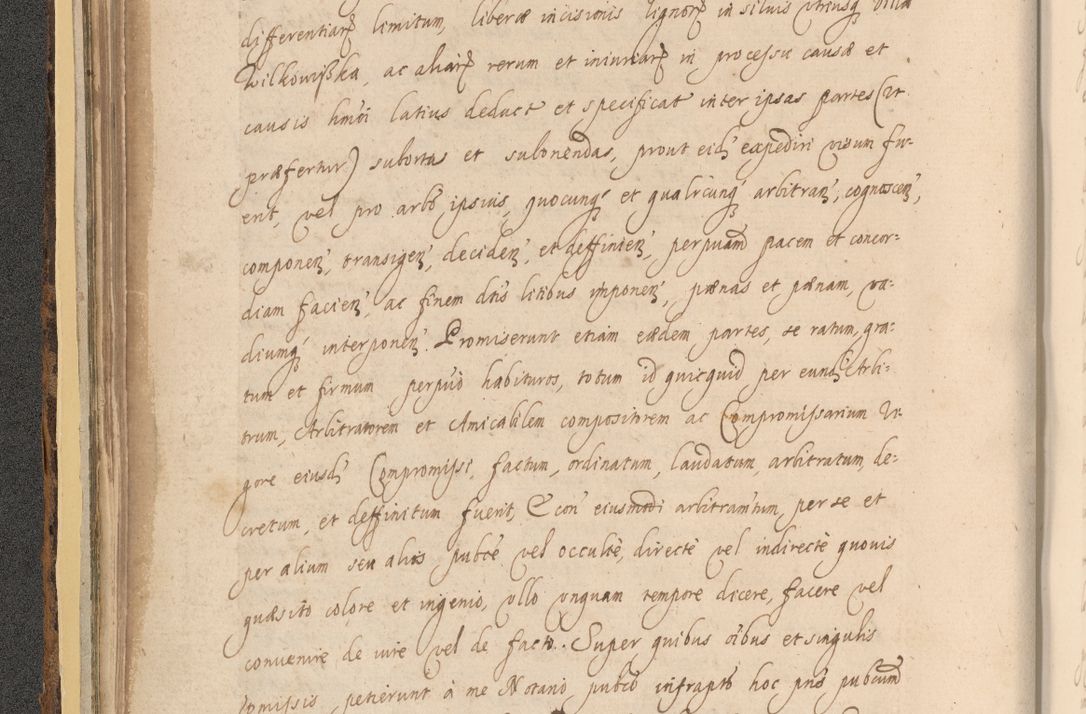 differentiarꝫ limitum, liberæ incisionis lignorꝫ in siluis vtriusqꝫ villa
Wilkowißka, ac aliarꝫ rerum et iniuriarꝫ in processu causæ et
causis hmoi latius deduct et specificat inter ipsas partes (vt
præfertur) subortas et subonendas, prout eidꝫ expediri visum fu-
erit, vel pro arbo ipsius, quocunqꝫ et qualicunqꝫ arbitranꝫ, cognoscenꝫ,
componenꝫ, transigenꝫ, decidenꝫ, et deffinienꝫ, perpuam pacem et concor-
diam facienꝫ, ac finem dtis litibus imponenꝫ, pænas et pænam, va-
diumqꝫ interponenꝫ. Promiserunt etiam eædem partes, se ratum, gra-
tum et firmum perpuo habituros, totum id quicquid per eundꝫ Arbi-
trum, Arbitratorem et Amicabilem compositorem ac Compromissarium vi-
gore eiusdꝫ Compromissi, factum, ordinatum, laudatum, arbitratum, de-
cretum, et deffinitum fuerit, & con eiusmodi arbitramtum, per se et
per alium seu alios pubce vel occultè, directè vel indirectè quouis
quæsito colore et ingenio, vllo vnquam tempore dicere, facere vel
conuenire de iure vel de facto. Super quibus oibus et singulis
pmissis, petierunt à me Notario, pubco infrapto hoc pns pubcum